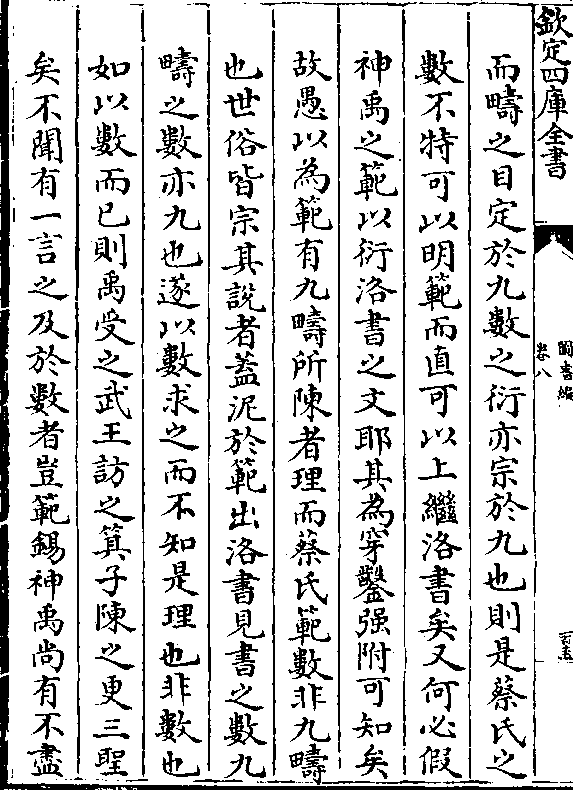 欽定四庫全書
圖書編
卷八
而疇之目定於九數之衍亦宗於九也則是蔡氏之
數不特可以明範而直可以上繼洛書矣又何必假
神禹之範以衍洛書之文耶其為穿鑿强附可知矣
故愚以為範有九疇所陳者理而蔡氏範數非九疇
也世俗皆宗其說者蓋泥於範出洛書見書之數九
疇之數亦九也遂以數求之而不知是理也非數也
如以數而已則禹受之武王訪之箕子陳之更三聖
矣不聞有一言之及於數者豈範錫神禹尚有不盡